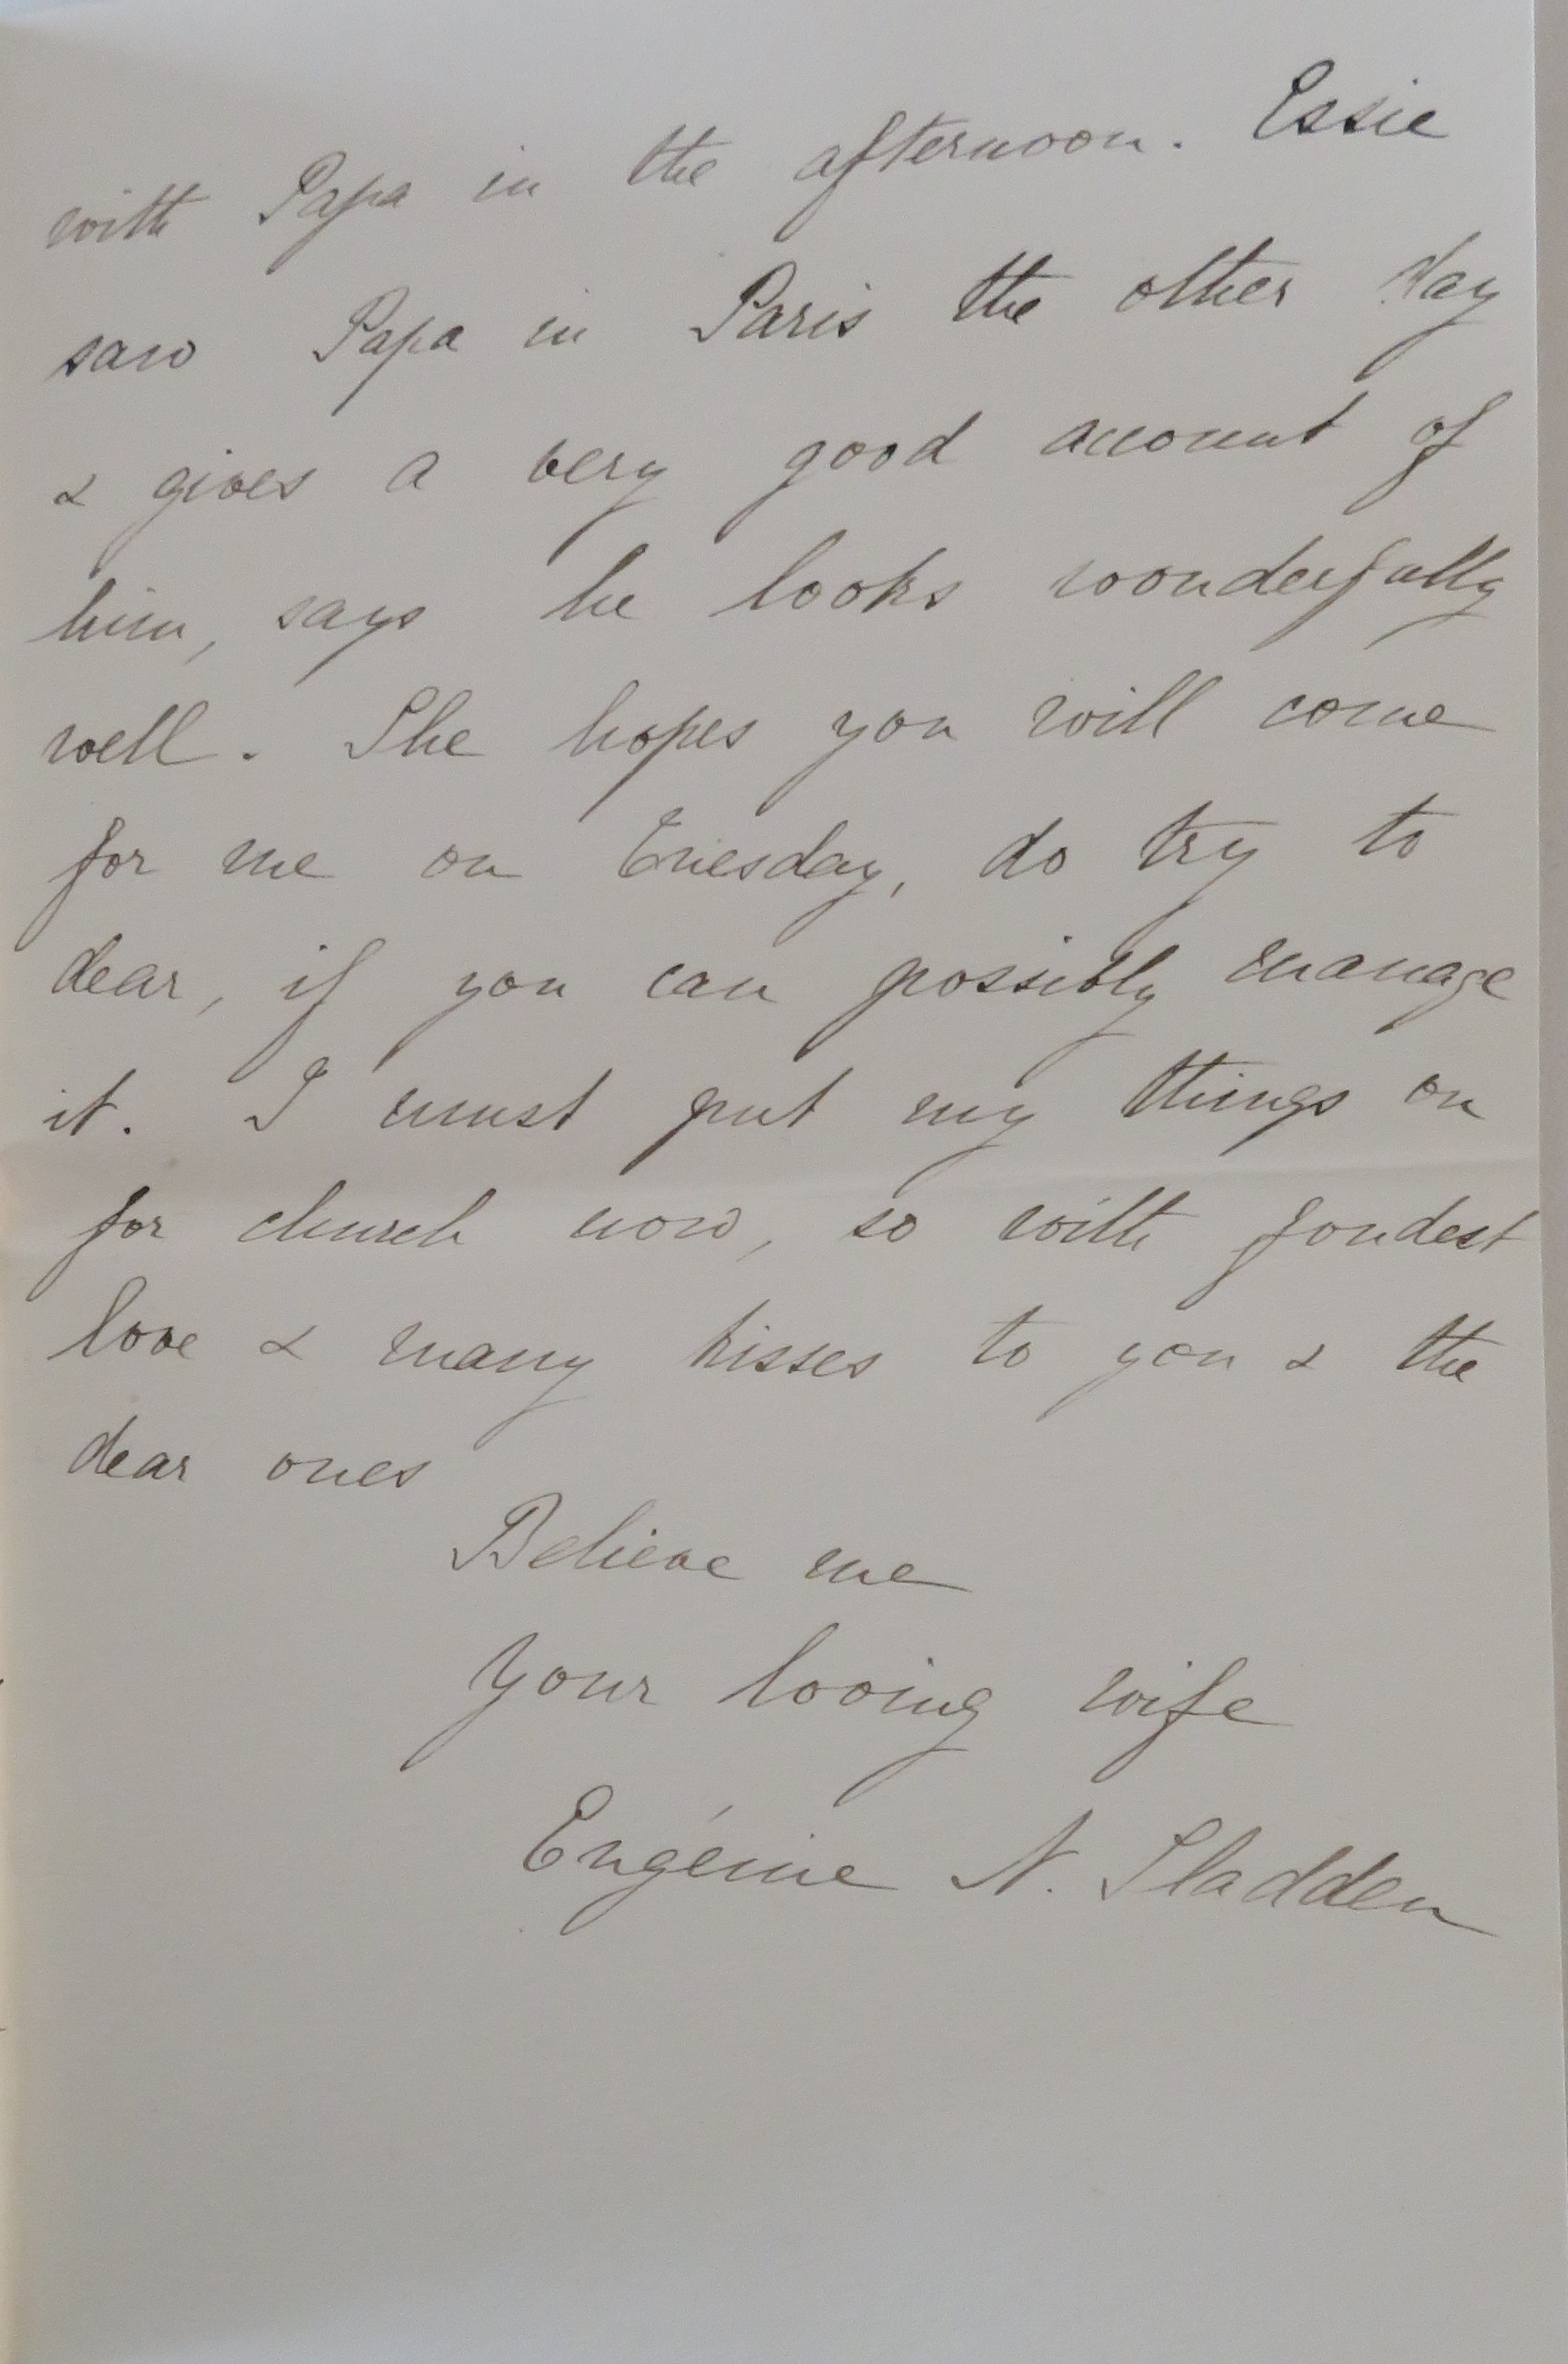 with Papa in the afternoon. Essie
saw Papa in Paris the other day
& gives a very good account of
him, says he looks wonderfully
well. She hopes you will come
for me on Tuesday, do try to
dear, if you can possibly manage
it. I must put my things on
for church now, so with fondest
love & many kisses to you & the
dear ones
Believe me
Your loving wife
Eugénie N. Sladden